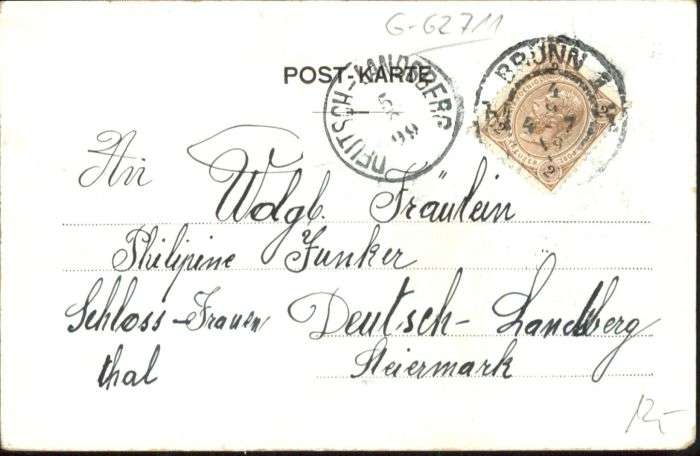 G-62711
POST-KARTE
DEUTSCH-LANDSBERG
99
BRÜNN 1
4
An
Wolgb. Fräulein
Philipine Junker
Schloss-Frauen Deutsch-Landsberg
thal Steiermark
12,-